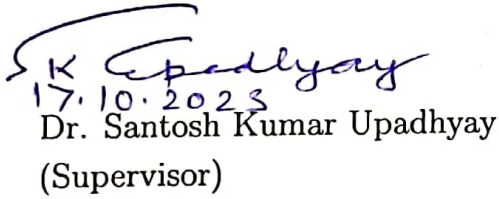 SK Upadhyay
17.10.2023
Dr. Santosh Kumar Upadhyay
(Supervisor)